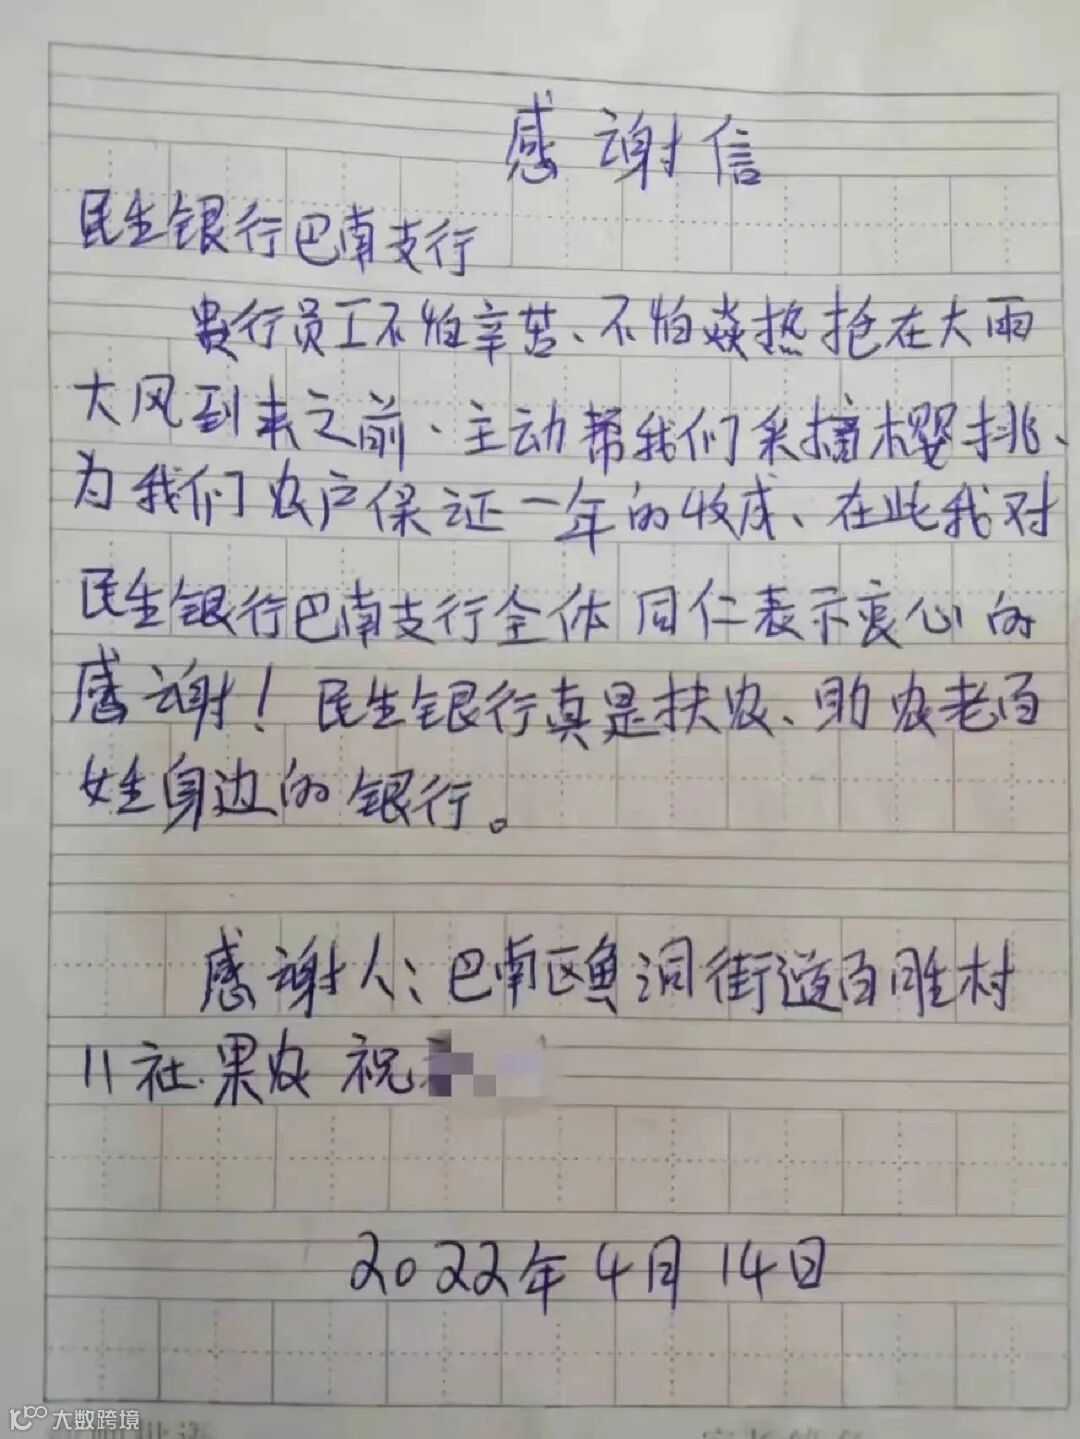 感谢信
民生银行巴南支行
贵行员工不怕辛苦、不怕炎热抢在大雨
大风到来之前、主动帮我们采摘樱挑、
为我们农户保证一年的收成、在此我对
民生银行巴南支行全体同仁表示衷心的
感谢！民生银行真是扶农、助农老百
姓身边的银行。
感谢人：巴南区鱼洞街道百胜村
11社.果农 祝
2022年4月14日
大数跨境